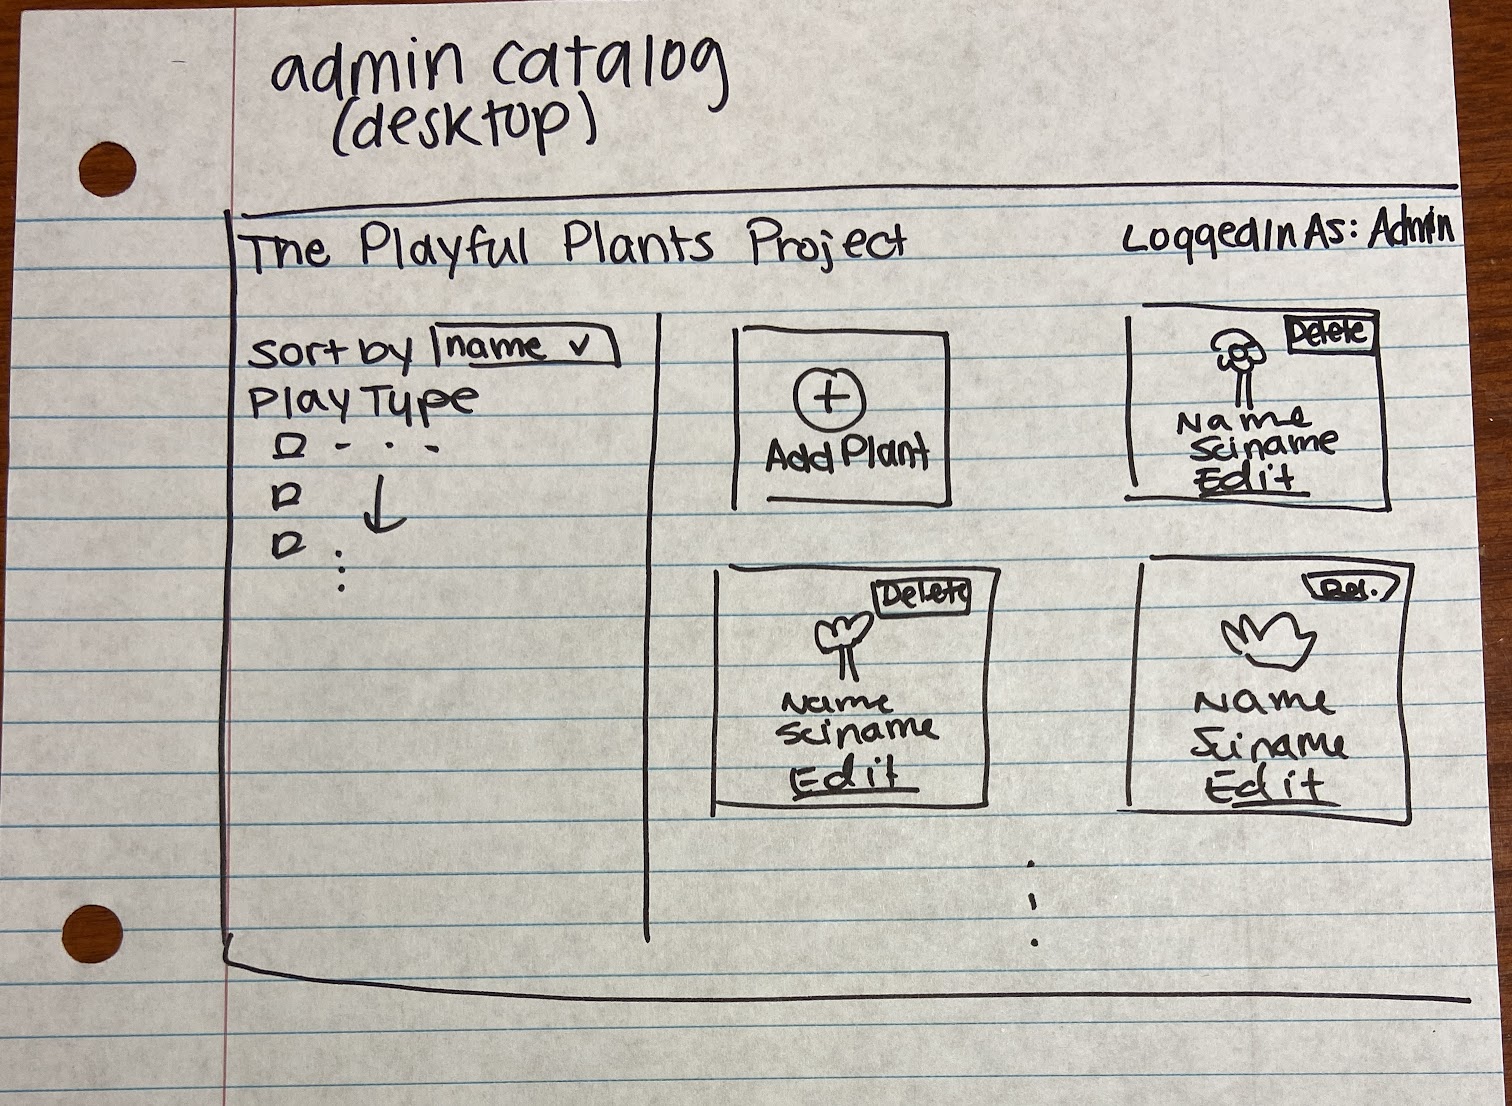 admin catalog
(desktop)
The Playful Plants Project
LoggedIn As: Admin
Sort by name
Play Type
Add Plant
Delete
Name
Sciname
Edit
Delete
Name
Sciname
Edit
Del.
Name
Sciname
Edit